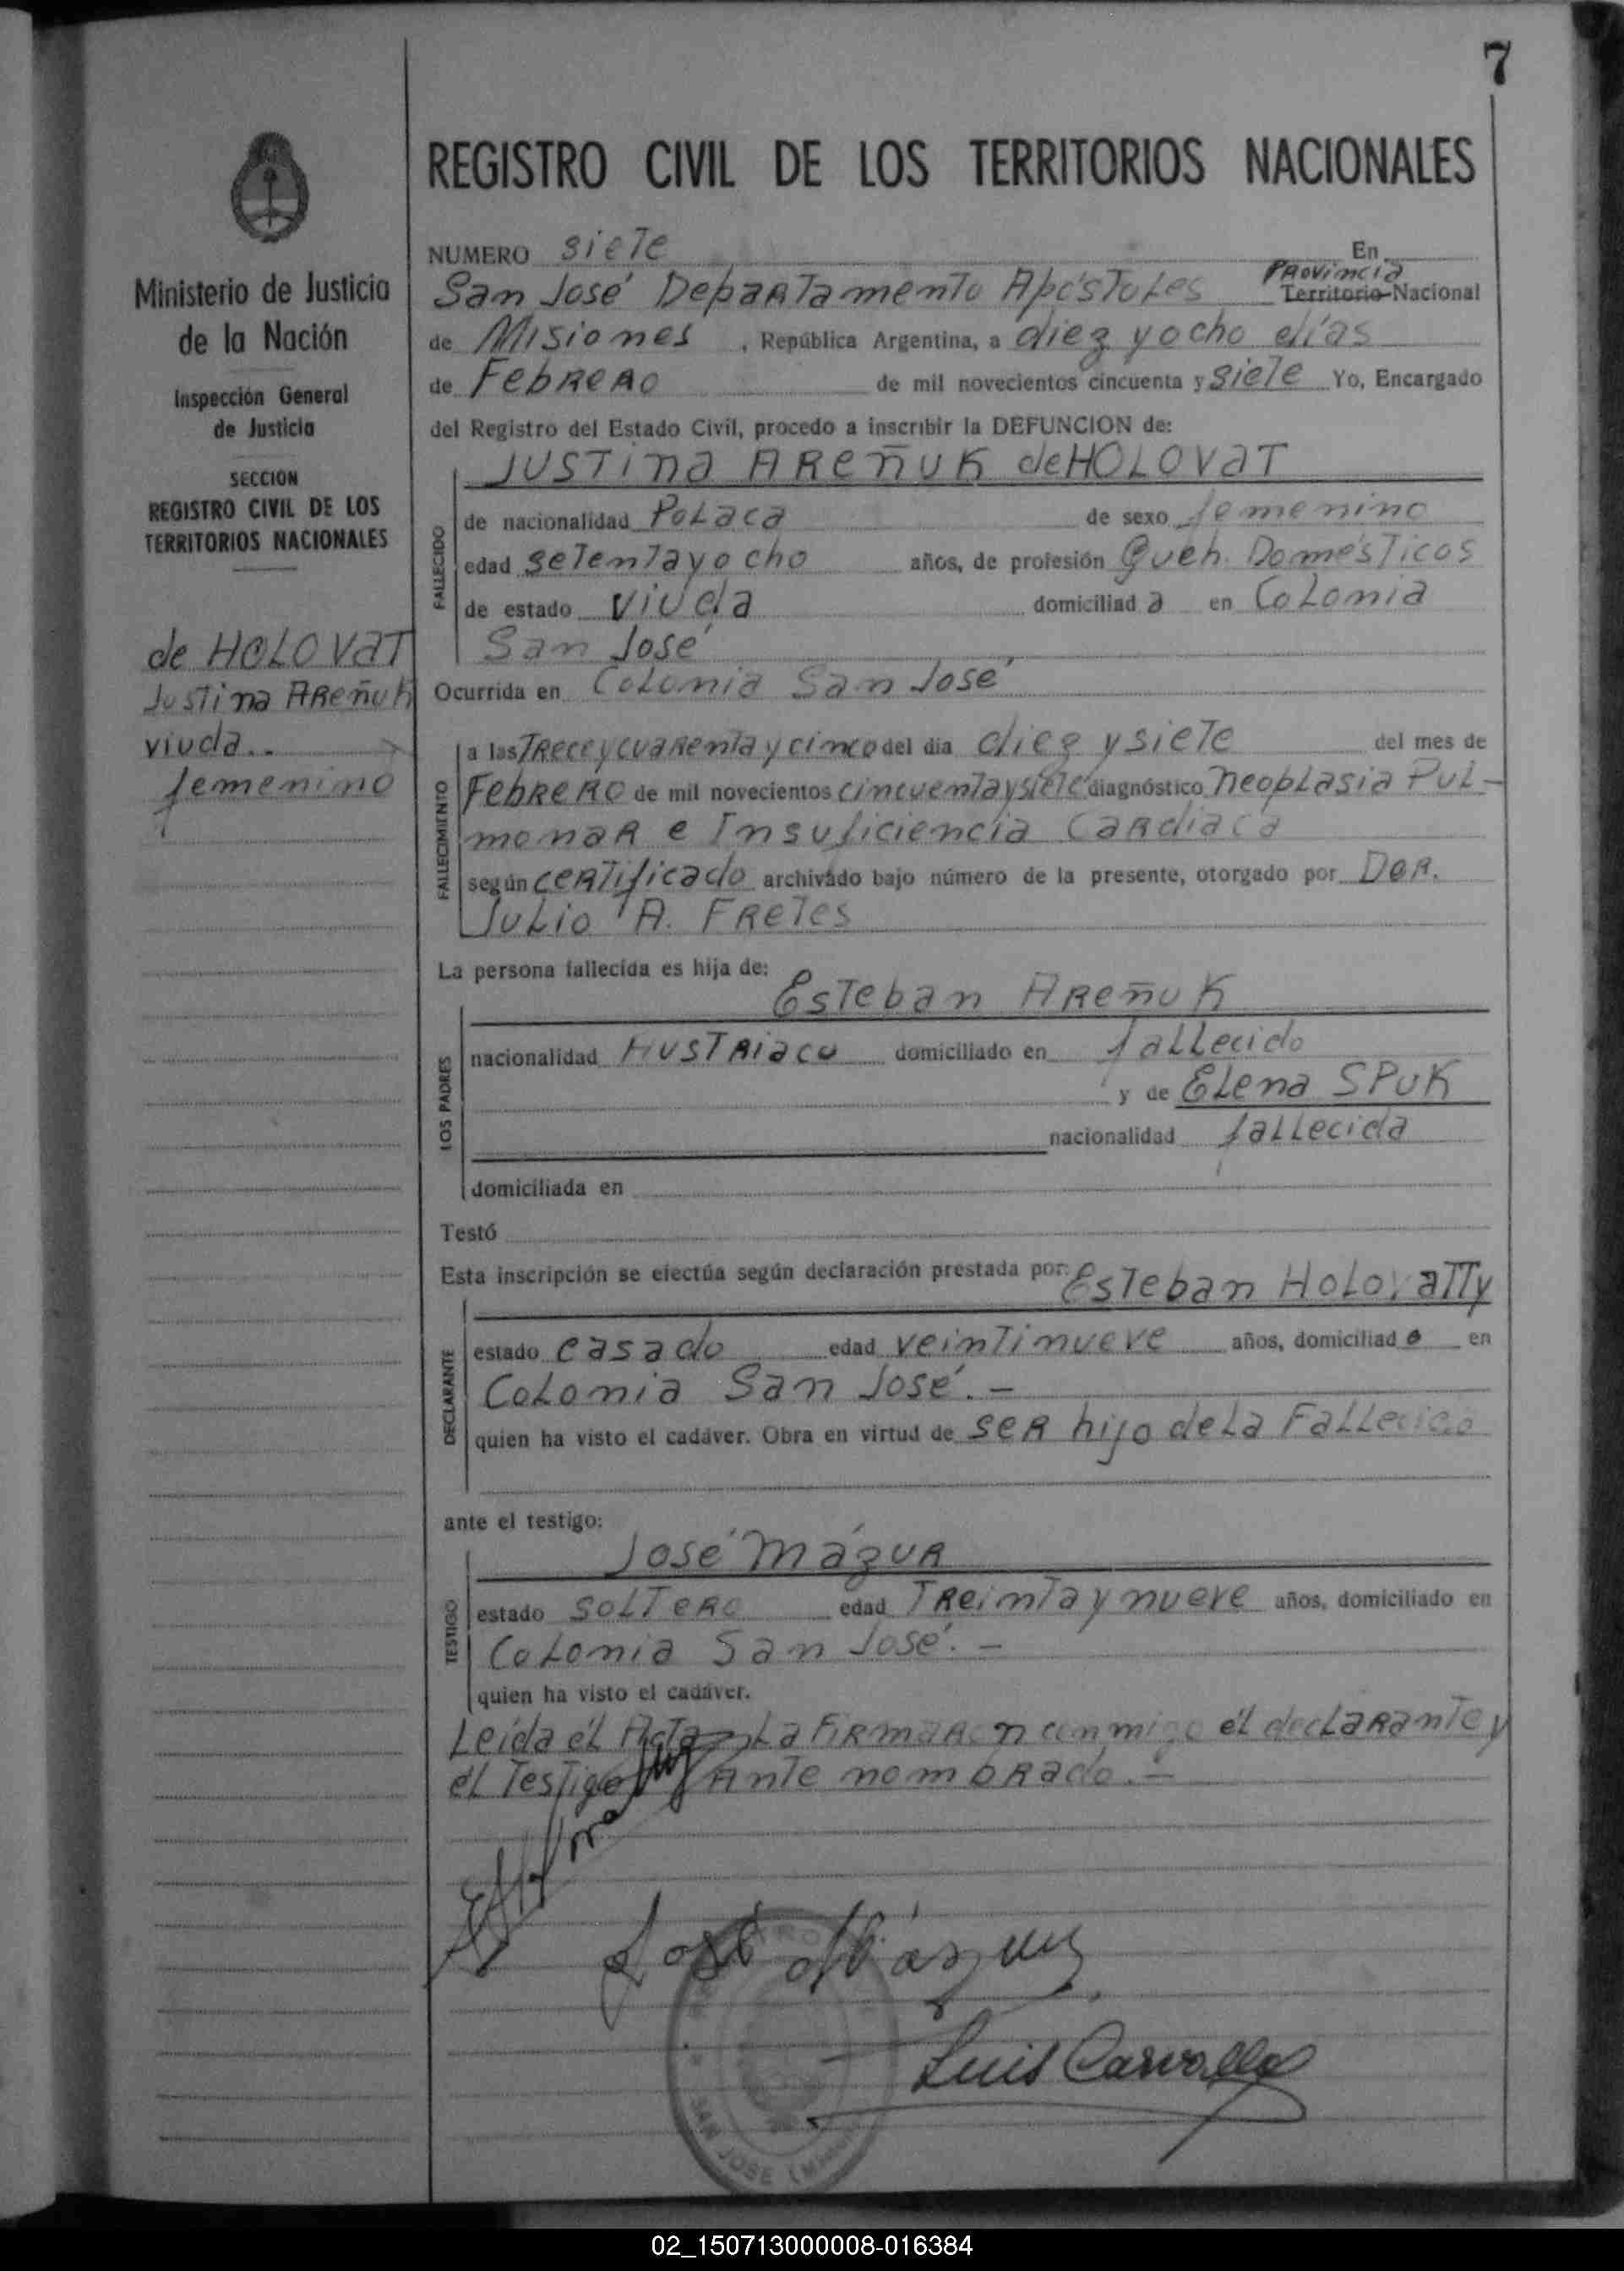 7
REGISTRO CIVIL DE LOS TERRITORIOS NACIONALES
Ministerio de Justicia
de la Nación
Inspección General
de Justicia
SECCION
REGISTRO CIVIL DE LOS
TERRITORIOS NACIONALES
de HOLOVAT
Justina AReñuK
viuda..
femenino
NUMERO siete En
San José Departamento Apóstoles Provincia Territorio Nacional
de Misiones, República Argentina, a diez y ocho días
de Febrero de mil novecientos cincuenta y siete Yo, Encargado
del Registro del Estado Civil, procedo a inscribir la DEFUNCION de:
JUSTina AReñUK de HOLOVAT
FALLECIDO
de nacionalidad Polaca de sexo femenino
edad setenta y ocho años, de profesión Queh. Domésticos
de estado Viuda domiciliada en Colonia
San José
Ocurrida en Colonia San José
FALLECIMIENTO
a las Trece y cuarenta y cinco del día diez y siete del mes de
Febrero de mil novecientos cincuenta y siete diagnóstico neoplasia Pul-
monar e Insuficiencia Cardiaca
según certificado archivado bajo número de la presente, otorgado por Dor.
Julio A. Fretes
La persona fallecida es hija de:
Esteban AReñuK
LOS PADRES
nacionalidad Austriaco domiciliado en fallecido
y de Elena SPUK
nacionalidad fallecida
domiciliada en
Testó
Esta inscripción se efectúa según declaración prestada por: Esteban Holovatty
DECLARANTE
estado casado edad veintinueve años, domiciliado en
Colonia San José.-
quien ha visto el cadáver. Obra en virtud de ser hijo de la Fallecida
ante el testigo:
José Mázur
TESTIGO
estado soltero edad Treinta y nueve años, domiciliado en
Colonia San José.-
quien ha visto el cadáver.
Leída él Acta La firmaron conmigo él declarante y
él Testigo Ante nombrado.-
José Mázur
Luis Carvallo
SAN JOSE
02_150713000008-016384